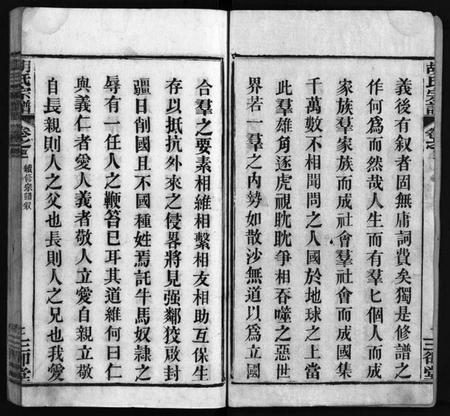 胡氏宗譜
卷首
三鄉堂
義後有叙者固無庸詞費矣獨是修譜之
作何爲而然哉人生而有羣匕個人而成
家族羣家族而成社會羣社會而成國集
千萬數不相聞問之人國於地球之上當
此羣雄角逐虎視眈眈爭相吞噬之惡世
界若一羣之內勢如散沙無道以爲立國
合羣之要素相維相繫相友相助互保生
存以抵抗外來之侵畧將見强鄰狡啟封
疆日削國且不國種姓焉託牛馬奴隸之
辱有一任人之鞭笞巳耳其道維何曰仁
與義仁者愛人義者敬人立愛自親立敬
自長親則人之父也長則人之兄也我愛
胡氏宗譜
卷首
續修宗譜叙